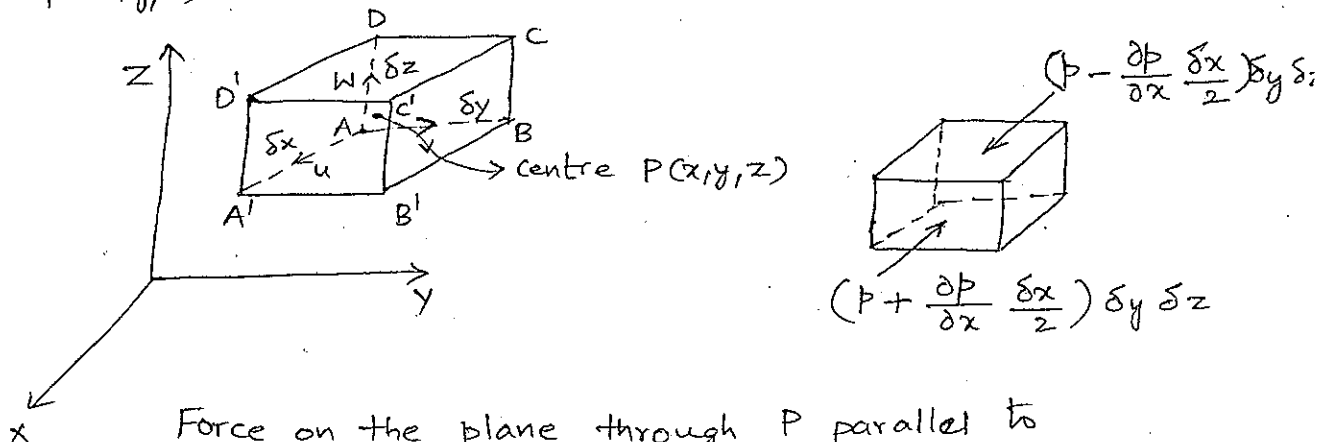 D
C
Z
W
δz
D'
C'
δy
A
B
δx
u
centre P(x,y,z)
A'
B'
Y
X
(p - ∂p/∂x δx/2) δy δ
(p + ∂p/∂x δx/2) δy δz
Force on the plane through P parallel to